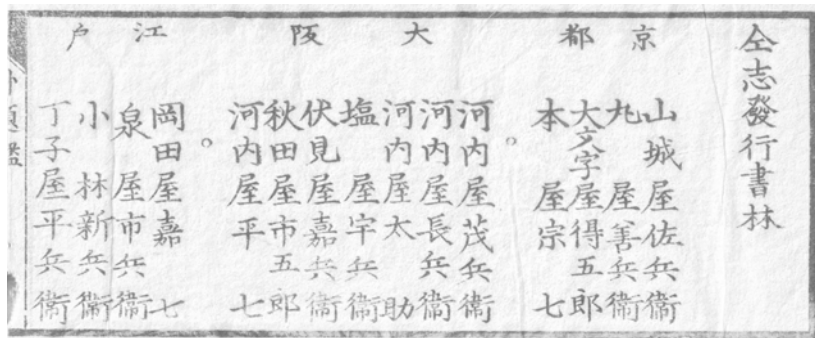 仝志發行書林
京都
山城屋佐兵衞
丸屋善兵衞
大文字屋得五郎
本屋宗七
大阪
河内屋茂兵衞
河内屋長兵衞
河内屋太助
塩屋宇兵衞
伏見屋嘉兵衞
秋田屋市五郎
河内屋平七
江戸
岡田屋嘉七
泉屋市兵衞
小林新兵衞
丁子屋平兵衞